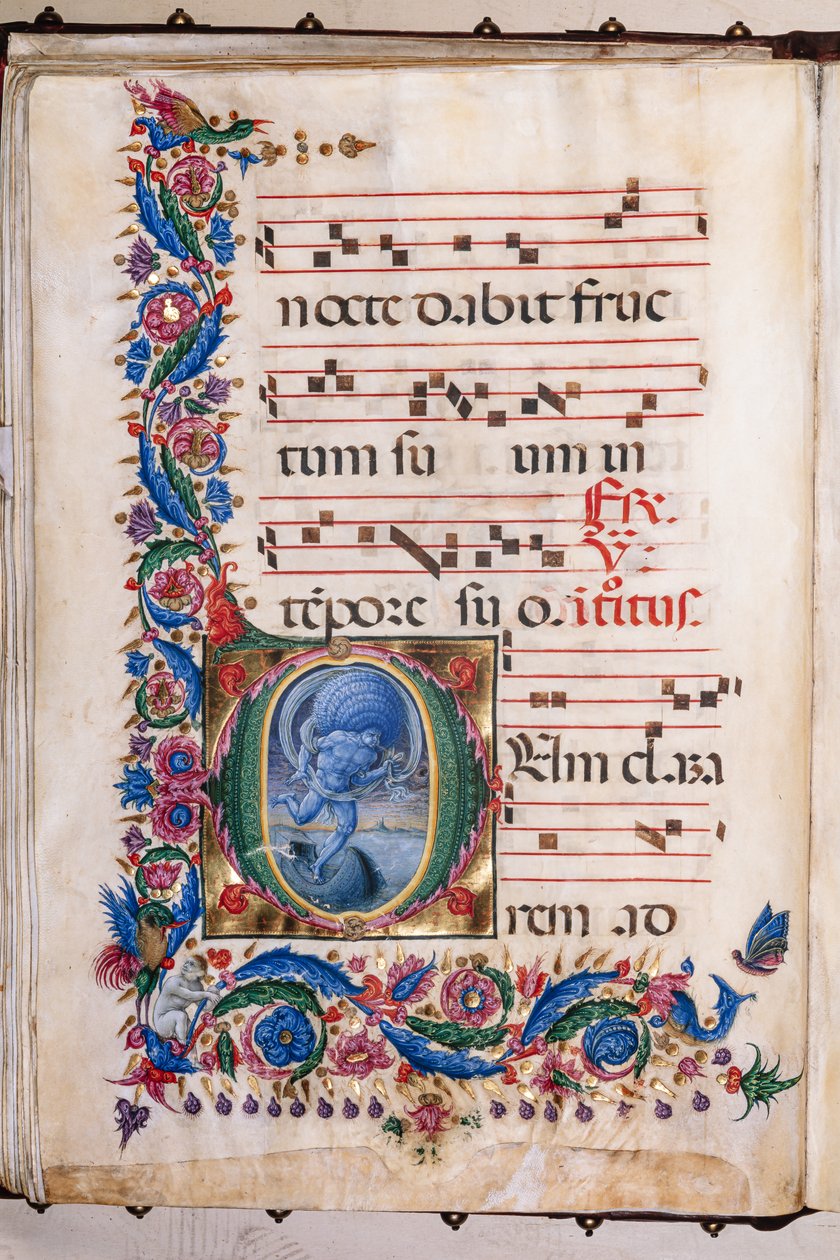 nocte dabit fruc
tum su um in
Fr.
V:
tēpore su o. itoitus.
DUm clama
rem ad